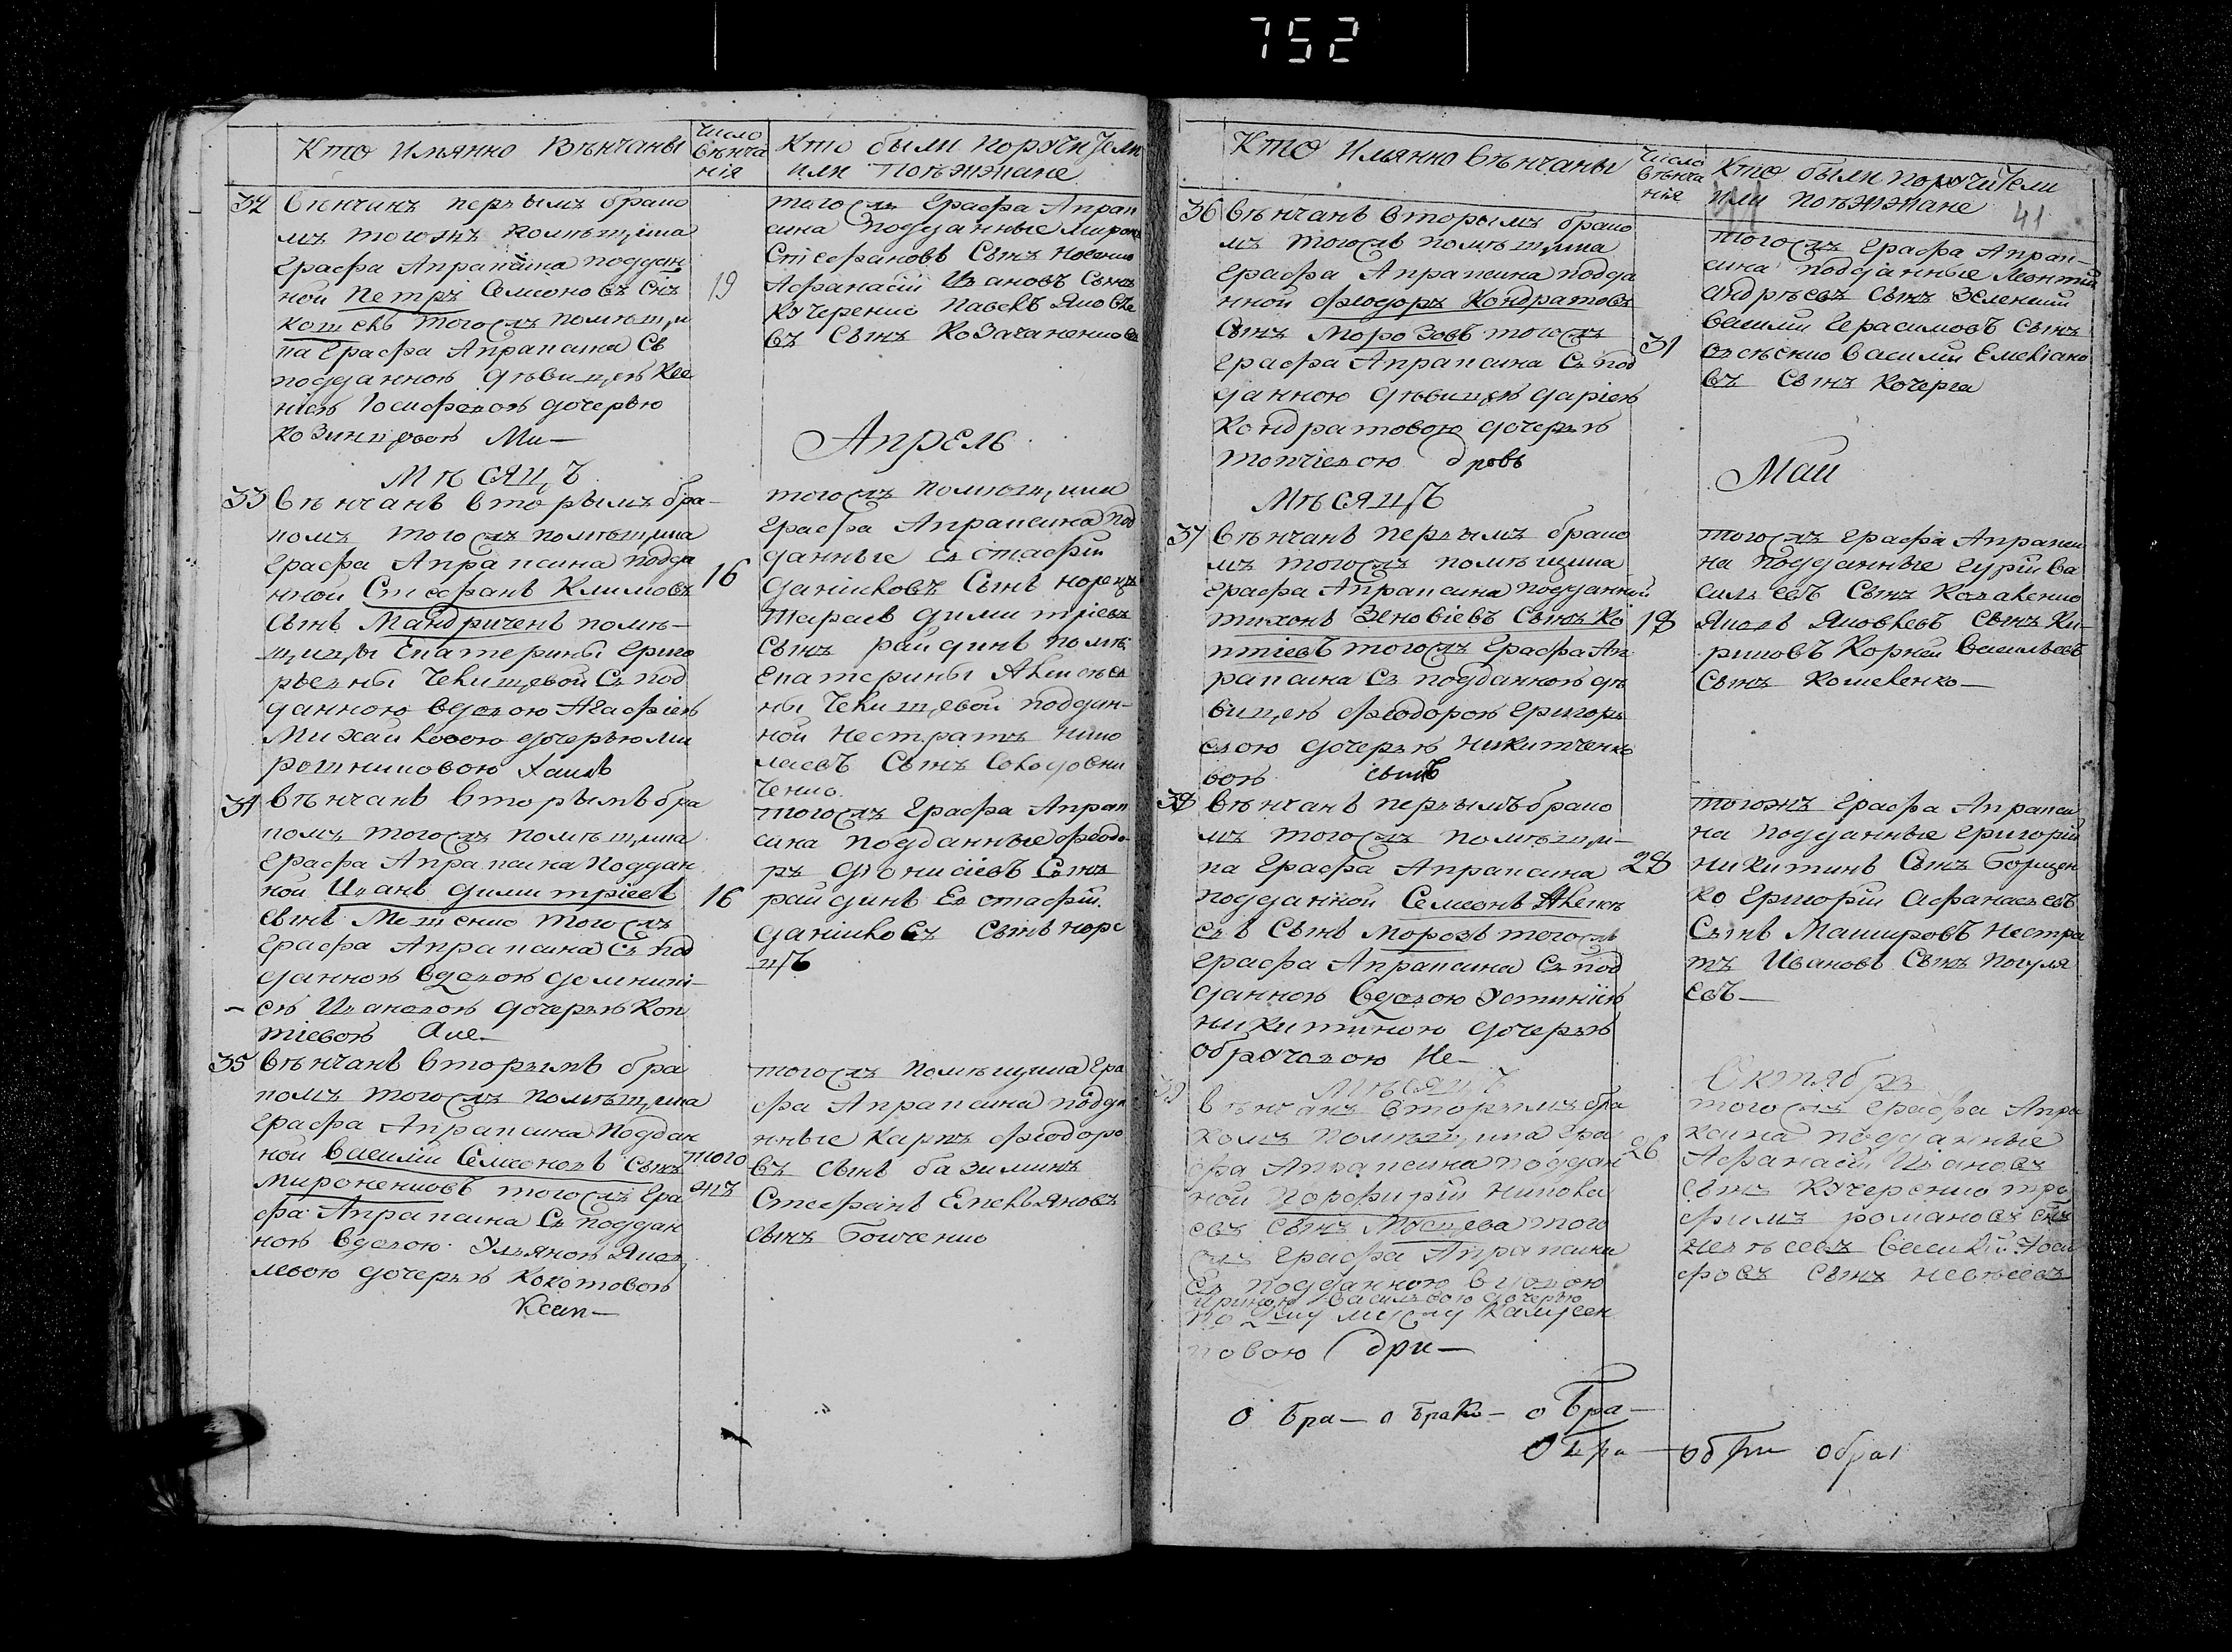 752
Кто Имянно Вѣнчаны
Число вѣнчанія
Кто были Поручители
или Поѣзжжане
32 вѣнчанъ первымъ брако
мъ тогожъ помѣщика
Графа Апраксина поддан
ной Петръ Семіоновъ Снъ
Кошель тогожъ помѣщи
ка Графа Апраксина Съ
подданною дѣвицею Ксе
ніею Іосифовою дочерью
Козинцовою Ми—
19
тогожъ Графа Апрак
сина подданные Миронъ
Стефановъ Сынъ
Афанасій Ивановъ Сынъ
Кучеренко Павелъ Яковле
въ Сынъ
Мѣсяцъ
Апрель
33 вѣнчанъ вторымъ бра—
комъ тогожъ помѣщика
Графа Апраксина подда
нной Стефанъ Климовъ
Сынъ Мандриченъ помѣ—
щицы Екатерины Григо
рьевны съ под
данною вдовою Агафіею
Михайловою дочерью Ми
рошниковою
16
тогожъ помѣщика
Графа Апраксина под
данные Евстафій
Даниловъ Сынъ Норецъ
Тарасъ Димитріевъ
Сынъ Райдинъ помѣ
Екатерины
подан—
ной Нестратъ Нико
лаевъ Сынъ
ченко
34 вѣнчанъ вторымъ бра
комъ тогожъ помѣщика
Графа Апраксина Поддан
ной Иванъ Димитріевъ
Сынъ тогожъ
Графа Апраксина Съ под
данною вдовою Доминкі—
ею Ивановою дочерью Коп
тіевою Але—
16
тогожъ Графа Апрак
сина подданные Феодо
ръ Діонисіевъ Сынъ
Райдинъ Евстафій
Даниловъ Сынъ Норе
цъ
35 вѣнчанъ вторымъ бра
комъ тогожъ помѣщика
Графа Апраксина Поддан
ной Василій Семіоновъ Сынъ
Мироненковъ тогожъ Гра
фа Апраксина Съ поддан
ною вдовою Ульяною Яков
левою дочерью Кокотовою
Ксип—
того
жъ
тогожъ помѣщика Гра
фа Апраксина подда
нные Карпъ Феодоро
въ Сынъ Базилинъ
Стефанъ Емельяновъ
Сынъ Боиченко
Кто Имянно вѣнчаны
Число вѣнчанія
Кто были поручители
или поѣзжжане
41
36 вѣнчанъ вторымъ брако
мъ тогожъ помѣщика
Графа Апраксина подда
нной Феодоръ Кондратовъ
Сынъ Морозовъ тогожъ
Графа Апраксина Съ под
данною дѣвицею Даріею
Кондратовою дочерью
Топчіевою
31
тогожъ Графа Апрак—
сина подданные Леонтій
Андрѣевъ Сынъ Зеленкій
Василій Герасимовъ Сынъ
Василій Емеліано
въ Сынъ Кочерга
Мѣсяцъ
Май
37 вѣнчанъ первымъ брако
мъ тогожъ помѣщика
Графа Апраксина подданной
Тихонъ Зеновіевъ Сынъ Ко
птіевъ тогожъ Графа Ап
раксина Съ подданною дѣ
вицею Феодорою Григорь
евою дочерью Никитченко
вою
18
тогожъ Графа Апракси
на подданные Гурій Ва
сильевъ Сынъ
Яковъ Яковлевъ Сынъ Ки—
риковъ Корней Васильевъ
Сынъ Кошеленко—
38 вѣнчанъ первымъ брако
мъ тогожъ помѣщи—
ка Графа Апраксина
подданной Семіонъ Алексѣ
евъ Сынъ Морозъ тогожъ
Графа Апраксина Съ под
данною вдовою Устиніею
Никитиною дочерью
Обручовою Не—
28
тогожъ Графа Апракси
на подданные Григорій
Никитинъ Сынъ Борщен
ко Григорій Афанасьевъ
Сынъ Машировъ Нестра
тъ Ивановъ Сынъ
евъ—
Мѣсяцъ
Октябрь
39 вѣнчанъ вторымъ бра
комъ помѣщика Гра
фа Апраксина поддан
ной Порфирій Никола
евъ Сынъ того
жъ Графа Апраксина
Съ подданною вдовою
Ириною Васильевою дочерью
по мужу
новою Дри—
26
тогожъ Графа Апра
ксина подданные
Афанасій Ивановъ
Сынъ Кучеренко Тро
фимъ Романовъ Снъ
Василій Иоси
фовъ Сынъ
О Бра— О Брако— О Бра—
О Бра— обра